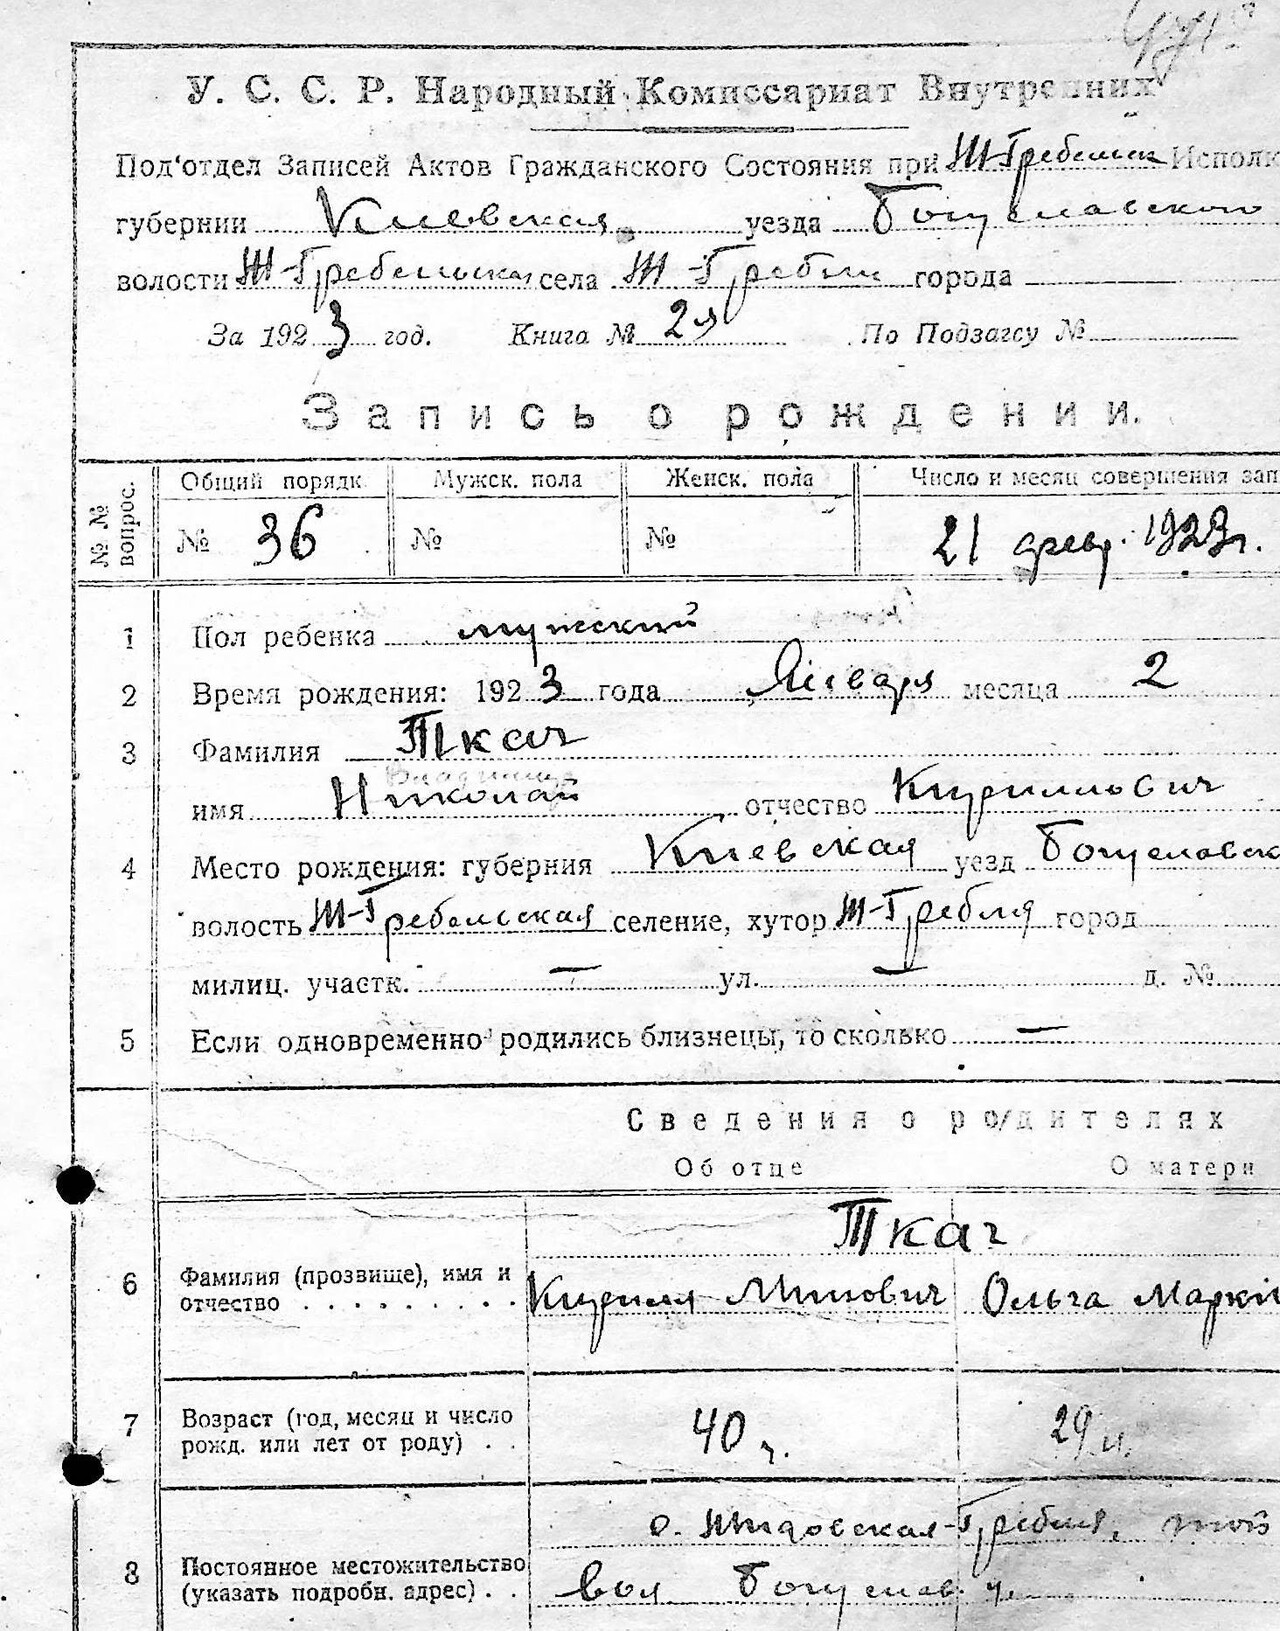 У. С. С. Р. Народный Комиссариат Внутренних
Под'отдел Записей Актов Гражданского Состояния при Ж-Гребельск Исполк
губернии Киевская уезда Богуславского
волости Ж-Гребельская села Ж-Гребли города
За 1923 год. Книга № 2я По Подзагсу №
Запись о рождении.
№ № вопрос.
Общий порядк. Мужск. пола Женск. пола Число и месяц совершения зап
№ 36 № № 21 февр. 1923г.
1 Пол ребенка мужеский
2 Время рождения: 1923 года Января месяца 2
3 Фамилия Ткач
Владимир
имя Николай отчество Кириллович
4 Место рождения: губерния Киевская уезд Богуславск
волость Ж-Гребельская селение, хутор Ж-Гребля город
милиц. участк. — ул. — д. №
5 Если одновременно родились близнецы, то сколько —
Сведения о родителях
Об отце О матери
Ткач
6 Фамилия (прозвище), имя и
отчество Кирилл Минович Ольга Маркі
7 Возраст (год, месяц и число
рожд. или лет от роду) 40 г. 29 л.
с. Жидовская-Гребля, той
8 Постоянное местожительство
(указать подробн. адрес) вол Богуслав. у.